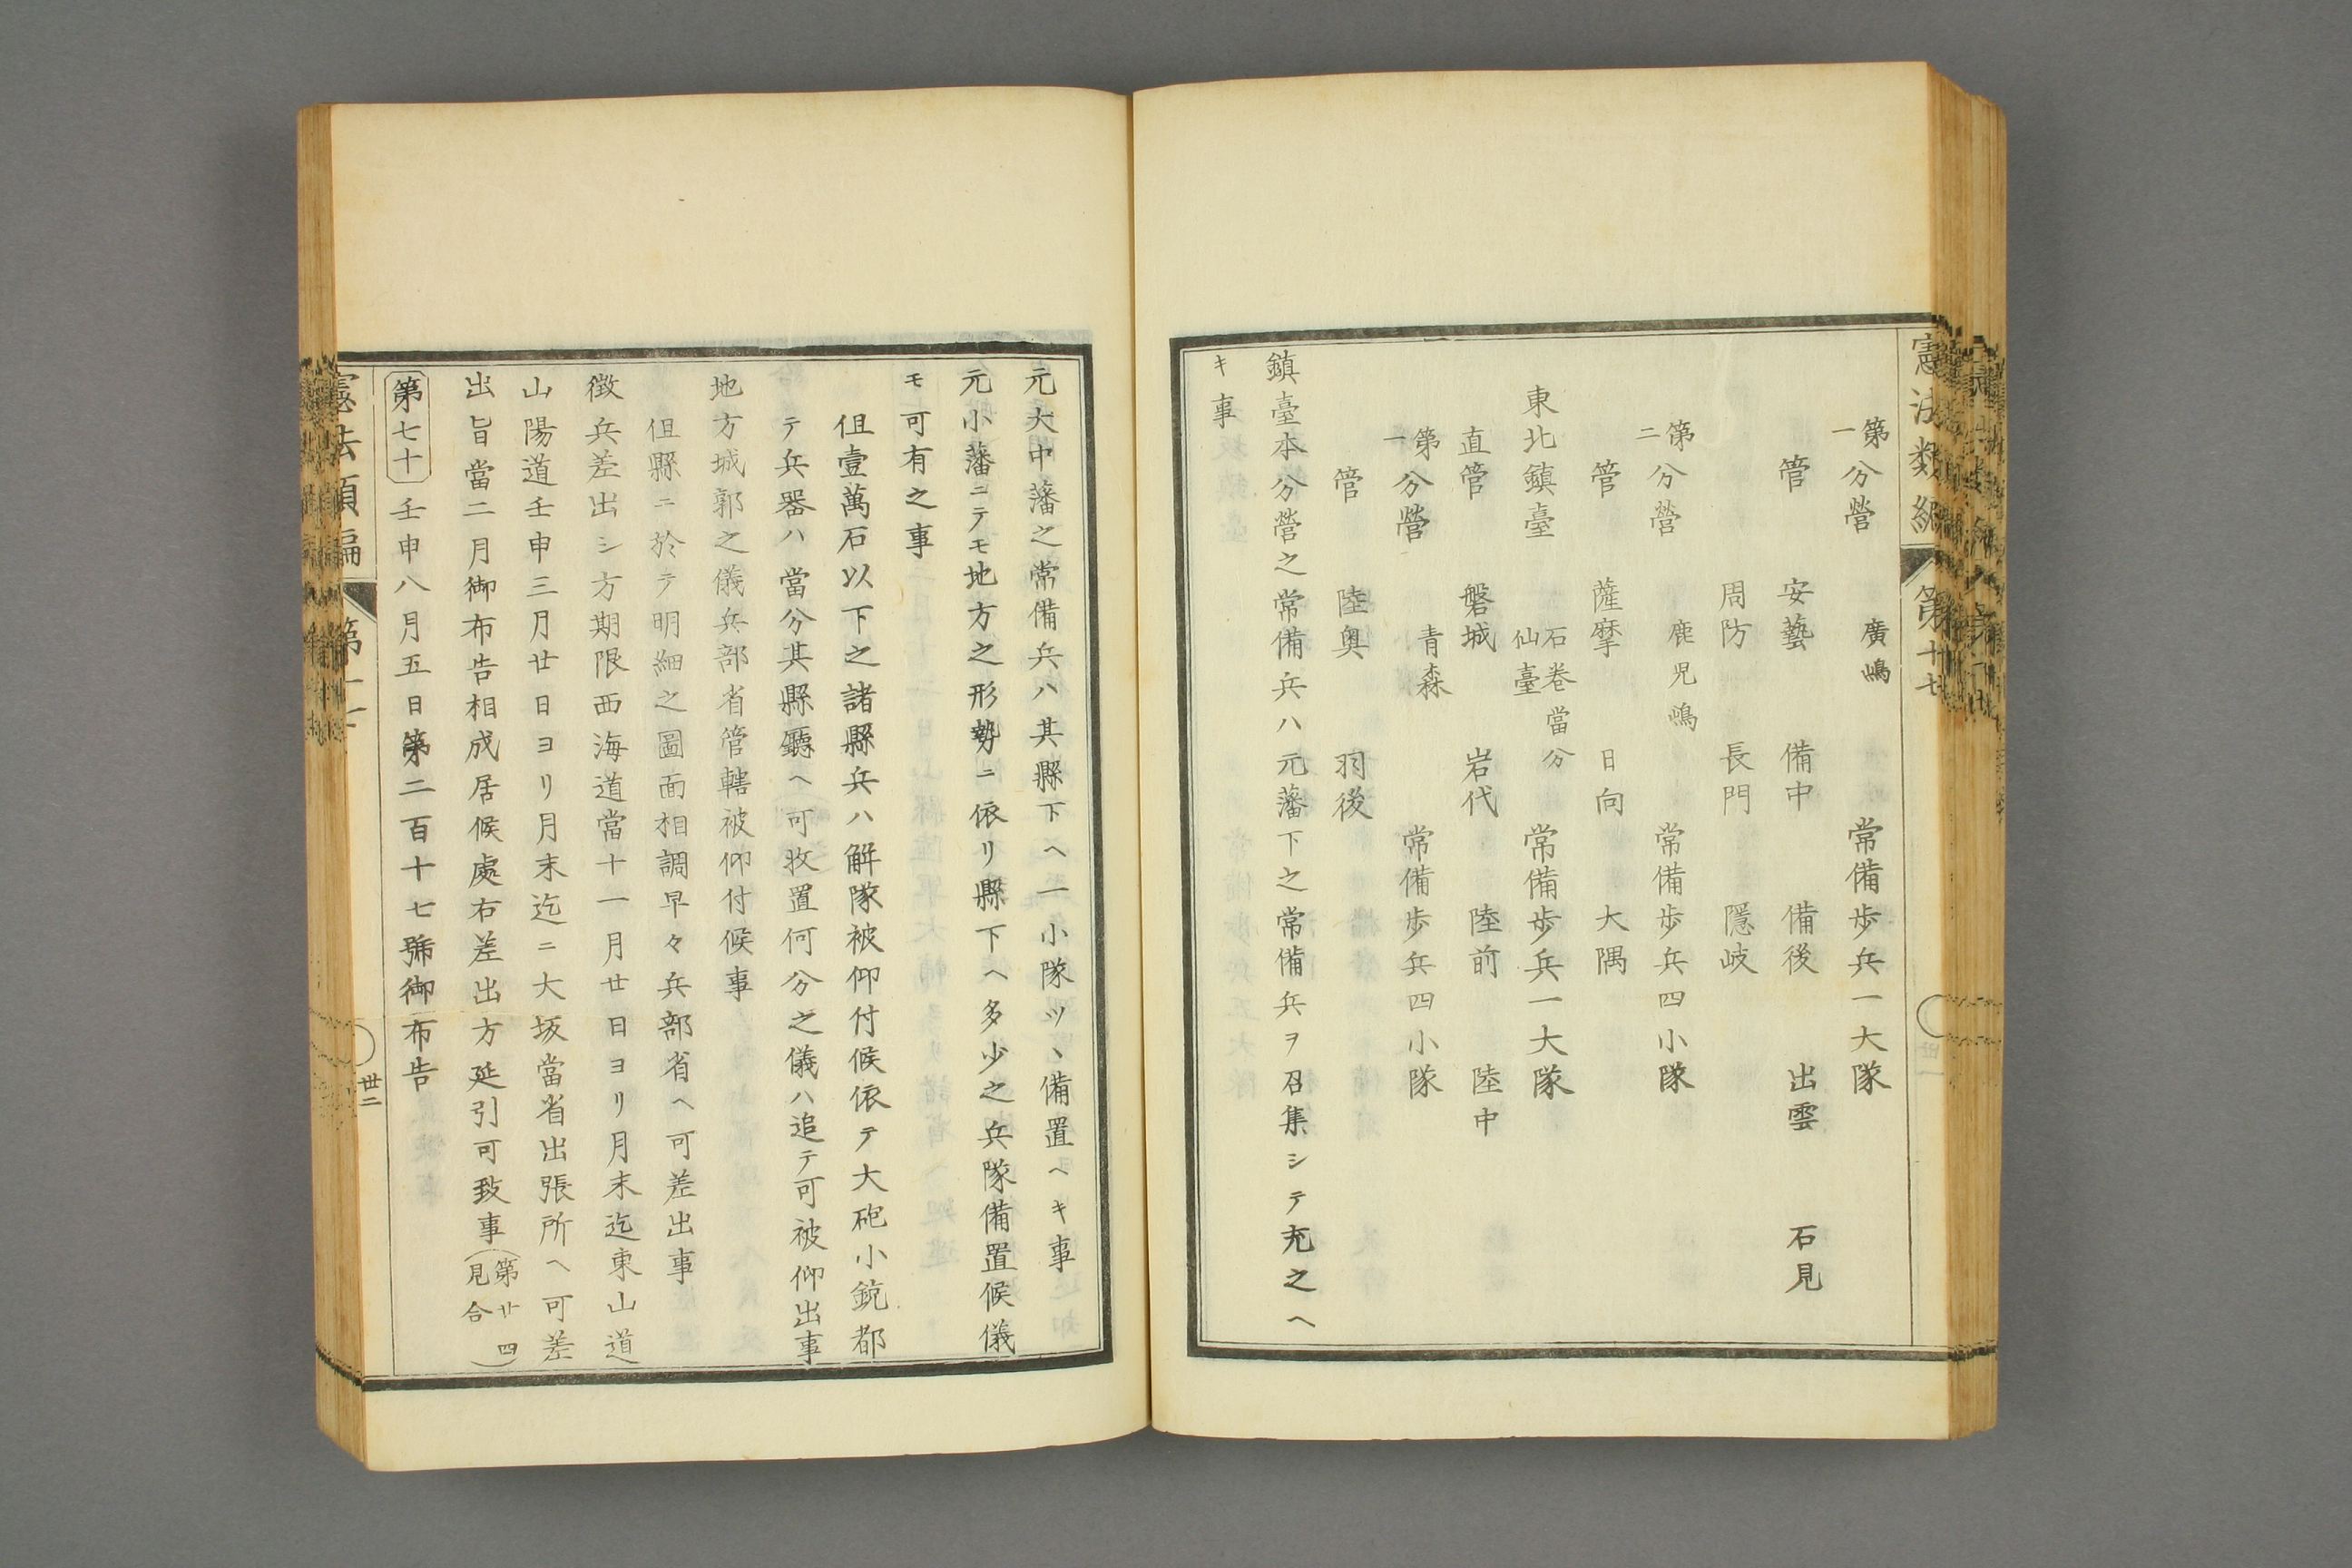 第一分營　廣嶋　常備歩兵一大隊
管　安藝　備中　備後　出雲　石見
周防　長門　隱岐
第二分營　鹿兒嶋　常備歩兵四小隊
管　薩摩　日向　大隅
東北鎮臺　石卷當分仙臺　常備歩兵一大隊
直管　磐城　岩代　陸前　陸中
第一分營　青森　常備歩兵四小隊
管　陸奥　羽後
鎮臺本分營之常備兵ハ元藩下之常備兵ヲ召集シテ充之ヘ
キ事
元大中藩之常備兵ハ其縣下ヘ一小隊ツヽ備置ヘキ事
元小藩ニテモ地方之形勢ニ依リ縣下ヘ多少之兵隊備置候儀
モ可有之事
但壹萬石以下之諸縣兵ハ解隊被仰付候依テ大砲小銃都
テ兵器ハ當分其縣廳ヘ可收置何分之儀ハ追テ可被仰出事
地方城郭之儀兵部省管轄被仰付候事
但縣ニ於テ明細之圖面相調早々兵部省ヘ可差出事
徴兵差出シ方期限西海道當十一月廿日ヨリ月末迄東山道
山陽道壬申三月廿日ヨリ月末迄ニ大坂當省出張所ヘ可差
出旨當二月御布告相成居候處右差出方延引可致事（第廿四見合）
第七十　壬申八月五日第二百十七號御布告
卅二